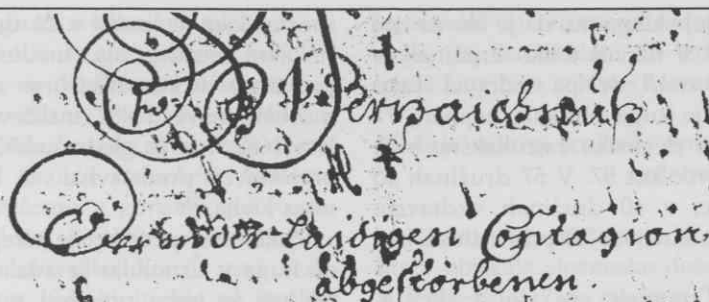 Verzaichnuß
Der an der Laidigen Contagion
abgestorbenen.